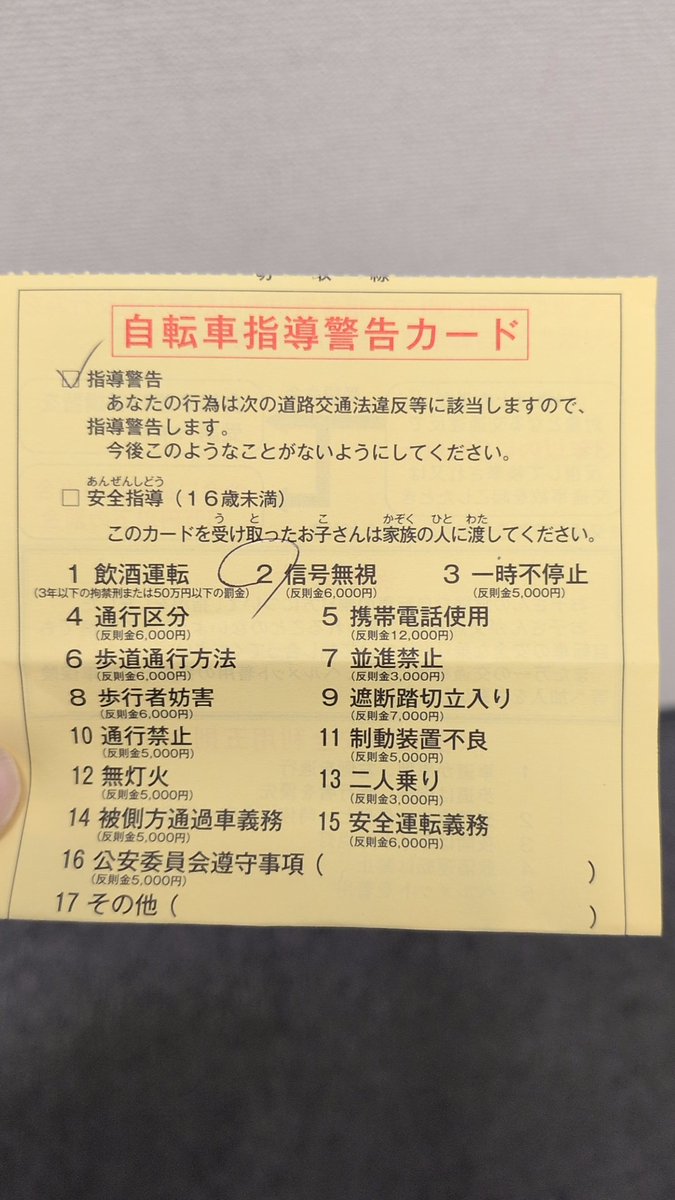 切取線
自転車指導警告カード
指導警告
あなたの行為は次の道路交通法違反等に該当しますので、
指導警告します。
今後このようなことがないようにしてください。
あんぜんしどう
□ 安全指導（16歳未満）
う と こ かぞく ひと わた
このカードを受け取ったお子さんは家族の人に渡してください。
1 飲酒運転 2 信号無視 3 一時不停止
(3年以下の拘禁刑または50万円以下の罰金) (反則金6,000円) (反則金5,000円)
4 通行区分 5 携帯電話使用
(反則金6,000円) (反則金12,000円)
6 歩道通行方法 7 並進禁止
(反則金6,000円) (反則金3,000円)
8 歩行者妨害 9 遮断踏切立入り
(反則金6,000円) (反則金7,000円)
10 通行禁止 11 制動装置不良
(反則金5,000円) (反則金5,000円)
12 無灯火 13 二人乗り
(反則金5,000円) (反則金3,000円)
14 被側方通過車義務 15 安全運転義務
(反則金5,000円) (反則金6,000円)
16 公安委員会遵守事項（ ）
(反則金5,000円)
17 その他（ ）